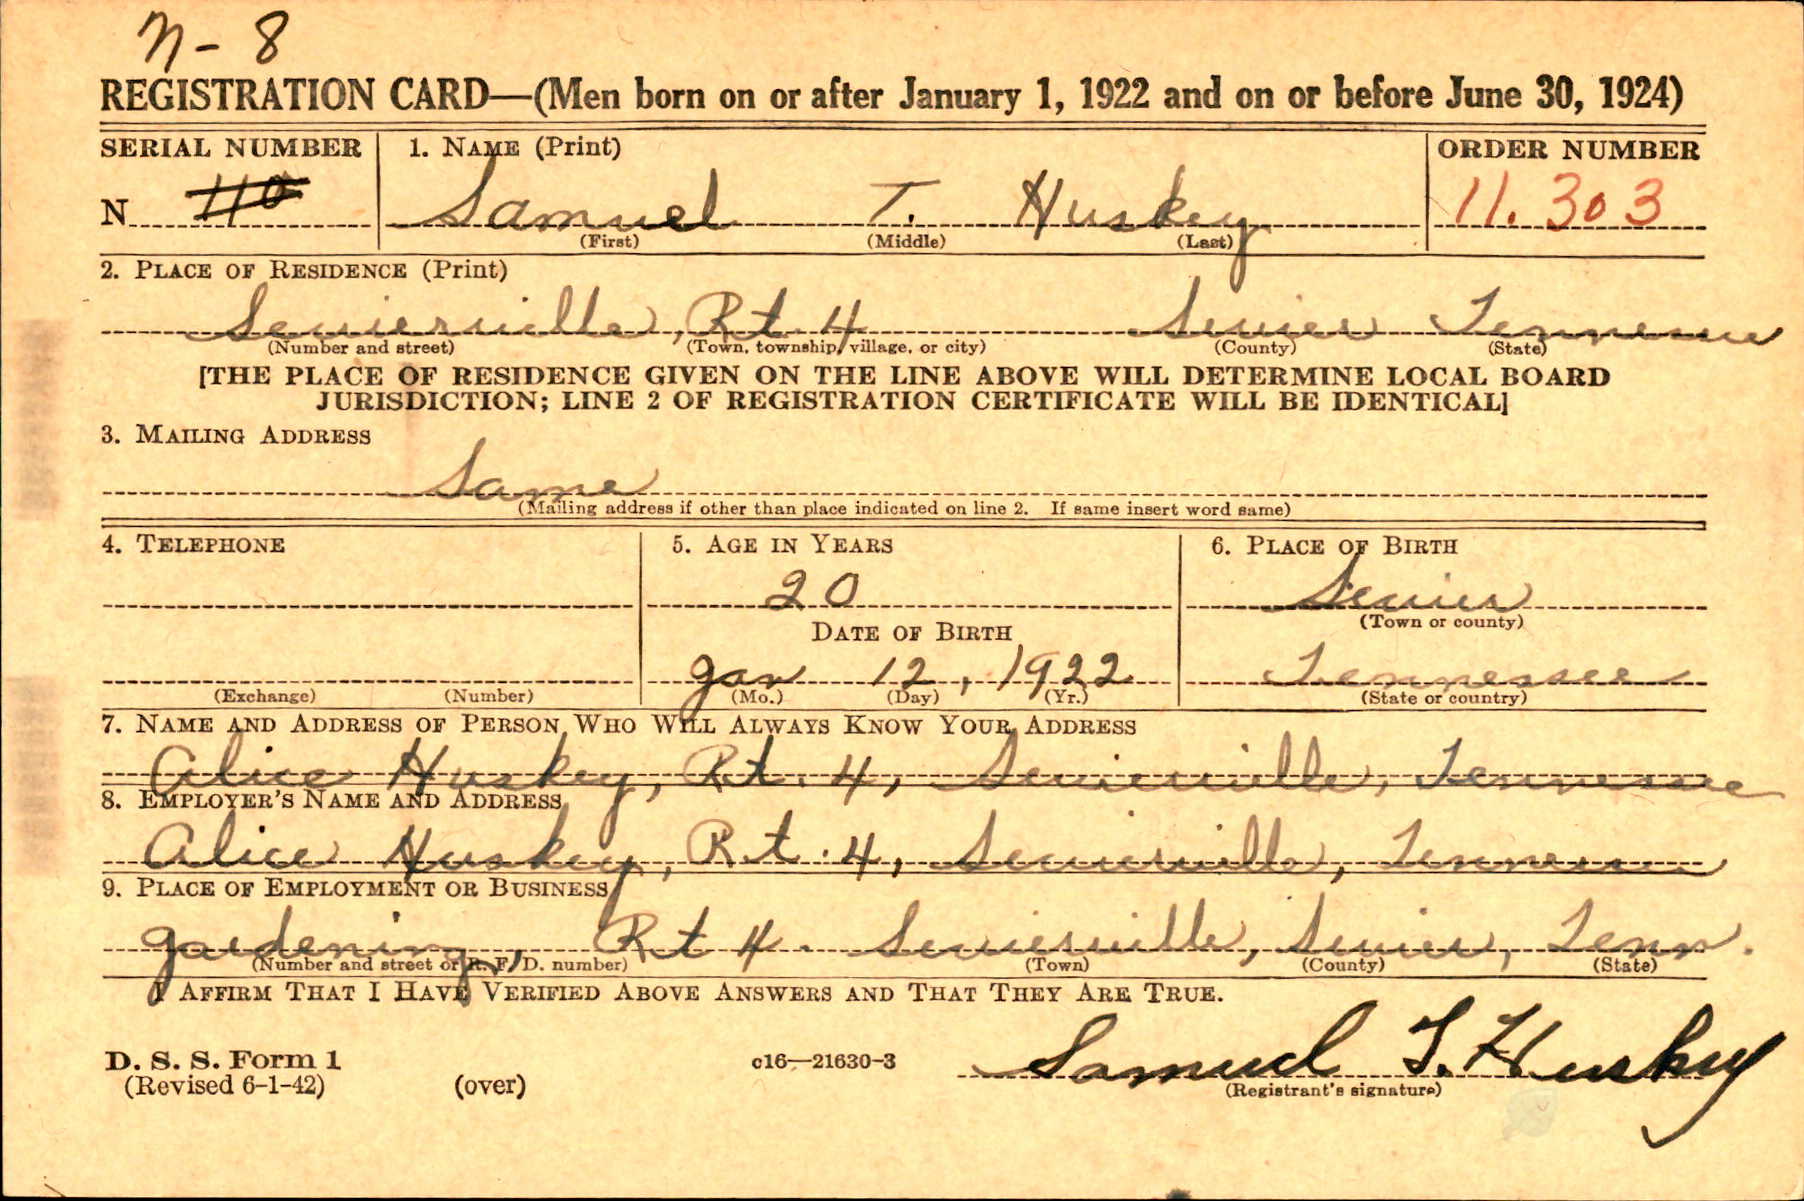 N-8
REGISTRATION CARD—(Men born on or after January 1, 1922 and on or before June 30, 1924)
SERIAL NUMBER
1. NAME (Print)
ORDER NUMBER
N 110
Samuel T. Huskey
11.303
(First) (Middle) (Last)
2. PLACE OF RESIDENCE (Print)
Sevierville, Rt. 4 Sevier Tennessee
(Number and street) (Town, township, village, or city) (County) (State)
[THE PLACE OF RESIDENCE GIVEN ON THE LINE ABOVE WILL DETERMINE LOCAL BOARD
JURISDICTION; LINE 2 OF REGISTRATION CERTIFICATE WILL BE IDENTICAL]
3. MAILING ADDRESS
Same
(Mailing address if other than place indicated on line 2. If same insert word same)
4. TELEPHONE
5. AGE IN YEARS
6. PLACE OF BIRTH
20
Sevier
(Town or county)
DATE OF BIRTH
Jan 12, 1922
Tennessee
(Exchange) (Number)
(Mo.) (Day) (Yr.)
(State or country)
7. NAME AND ADDRESS OF PERSON WHO WILL ALWAYS KNOW YOUR ADDRESS
Alice Huskey, Rt. 4, Sevierville, Tennessee
8. EMPLOYER'S NAME AND ADDRESS
Alice Huskey, Rt. 4, Sevierville, Tennessee
9. PLACE OF EMPLOYMENT OR BUSINESS
gardening, Rt 4. Sevierville, Sevier, Tenn.
(Number and street or R. F. D. number) (Town) (County) (State)
I AFFIRM THAT I HAVE VERIFIED ABOVE ANSWERS AND THAT THEY ARE TRUE.
D. S. S. Form 1
(Revised 6-1-42)
(over)
c16—21630-3
Samuel T. Huskey
(Registrant's signature)